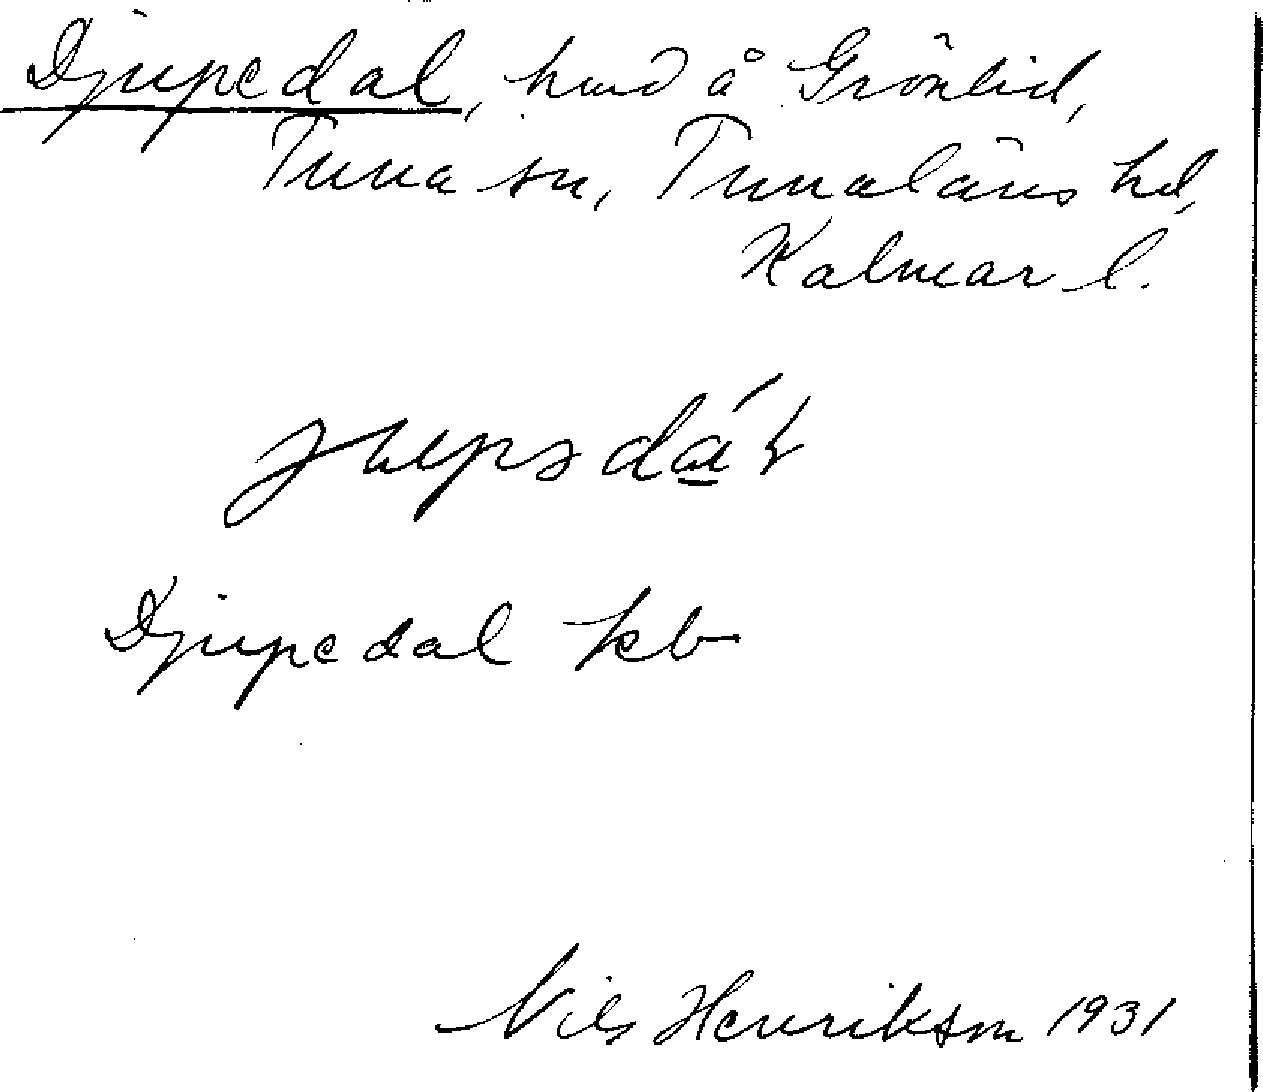 Djupedal, hmd å Grönlid,
Tuna sn, Tunaläns hd,
Kalmar l.
Djupedal kb
Nils Henrikson 1931